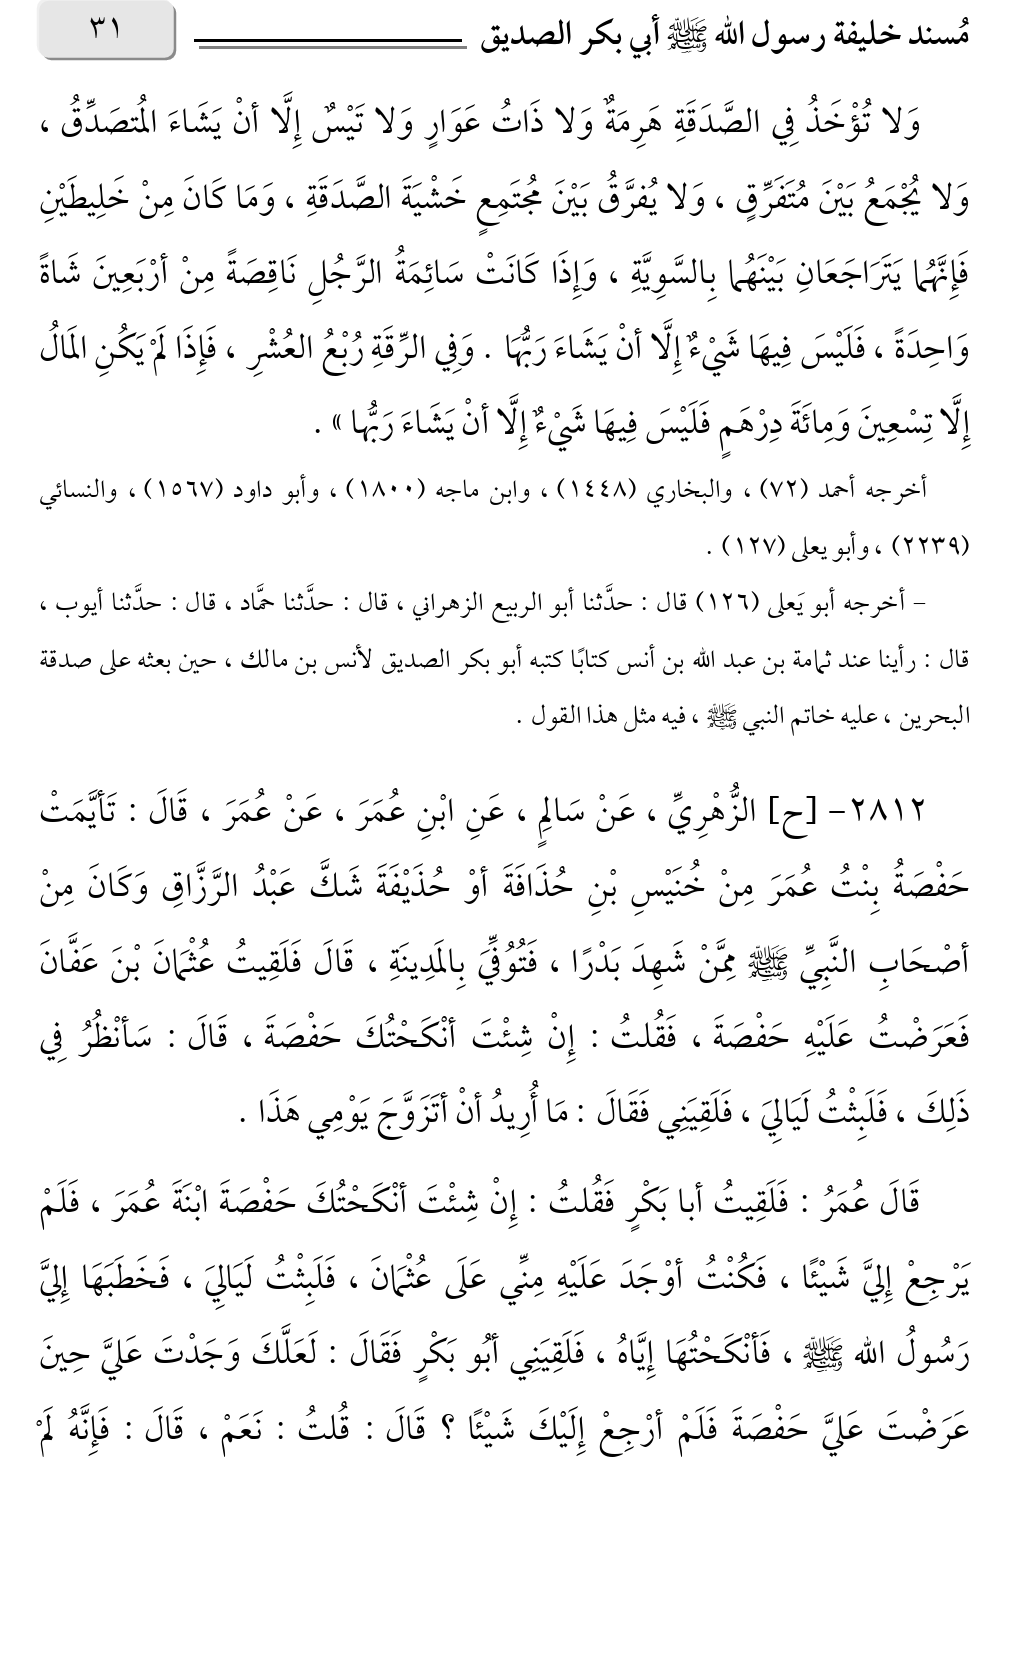 مُسند خليفة رسول الله ﷺ أبي بكر الصديق ٣١
وَلا تُؤْخَذُ فِي الصَّدَقَةِ هَرِمَةٌ وَلا ذَاتُ عَوَارٍ وَلا تَيْسٌ إِلَّا أنْ يَشَاءَ المُتصَدِّقُ ،
وَلا يُجْمَعُ بَيْنَ مُتَفَرِّقٍ ، وَلا يُفرَّقُ بَيْنَ مُجتَمِعٍ خَشْيَةَ الصَّدَقَةِ ، وَمَا كَانَ مِنْ خَلِيطَيْنِ
فَإِنَّهُما يَتَرَاجَعَانِ بَيْنَهُما بِالسَّوِيَّةِ ، وَإِذَا كَانَتْ سَائِمَةُ الرَّجُلِ نَاقِصَةً مِنْ أرْبَعِينَ شَاةً
وَاحِدَةً ، فَلَيْسَ فِيهَا شَيْءٌ إِلَّا أنْ يَشَاءَ رَبُّهَا . وَفِي الرِّقَةِ رُبْعُ العُشْرِ ، فَإِذَا لَمْ يَكُنِ المَالُ
إِلَّا تِسْعِينَ وَمِائَةَ دِرْهَمٍ فَلَيْسَ فِيهَا شَيْءٌ إِلَّا أنْ يَشَاءَ رَبُّها » .
أخرجه أحمد (٧٢) ، والبخاري (١٤٤٨) ، وابن ماجه (١٨٠٠) ، وأبو داود (١٥٦٧) ، والنسائي
(٢٢٣٩) ، وأبو يعلى (١٢٧) .
– أخرجه أبو يَعلى (١٢٦) قال : حدَّثنا أبو الربيع الزهراني ، قال : حدَّثنا حمَّاد ، قال : حدَّثنا أيوب ،
قال : رأينا عند ثمامة بن عبد الله بن أنس كتابًا كتبه أبو بكر الصديق لأنس بن مالك ، حين بعثه على صدقة
البحرين ، عليه خاتم النبي ﷺ ، فيه مثل هذا القول .
٢٨١٢– [ح] الزُّهْرِيِّ ، عَنْ سَالِمٍ ، عَنِ ابْنِ عُمَرَ ، عَنْ عُمَرَ ، قَالَ : تَأيَّمَتْ
حَفْصَةُ بِنْتُ عُمَرَ مِنْ خُنَيْسِ بْنِ حُذَافَةَ أوْ حُذَيْفَةَ شَكَّ عَبْدُ الرَّزَّاقِ وَكَانَ مِنْ
أصْحَابِ النَّبِيِّ ﷺ مِمَّنْ شَهِدَ بَدْرًا ، فَتُوُفِّيَ بِالمَدِينَةِ ، قَالَ فَلَقِيتُ عُثْمَانَ بْنَ عَفَّانَ
فَعَرَضْتُ عَلَيْهِ حَفْصَةَ ، فَقُلتُ : إِنْ شِئْتَ أنْكَحْتُكَ حَفْصَةَ ، قَالَ : سَأنْظُرُ فِي
ذَلِكَ ، فَلَبِثْتُ لَيَالِيَ ، فَلَقِيَنِي فَقَالَ : مَا أُرِيدُ أنْ أتَزَوَّجَ يَوْمِي هَذَا .
قَالَ عُمَرُ : فَلَقِيتُ أبا بَكْرٍ فَقُلتُ : إِنْ شِئْتَ أنْكَحْتُكَ حَفْصَةَ ابْنَةَ عُمَرَ ، فَلَمْ
يَرْجِعْ إِلَيَّ شَيْئًا ، فَكُنْتُ أوْجَدَ عَلَيْهِ مِنِّي عَلَى عُثْمَانَ ، فَلَبِثْتُ لَيَالِيَ ، فَخَطَبَهَا إِلَيَّ
رَسُولُ الله ﷺ ، فَأنْكَحْتُهَا إِيَّاهُ ، فَلَقِيَنِي أبُو بَكْرٍ فَقَالَ : لَعَلَّكَ وَجَدْتَ عَلَيَّ حِينَ
عَرَضْتَ عَلَيَّ حَفْصَةَ فَلَمْ أرْجِعْ إِلَيْكَ شَيْئًا ؟ قَالَ : قُلتُ : نَعَمْ ، قَالَ : فَإِنَّهُ لَمْ